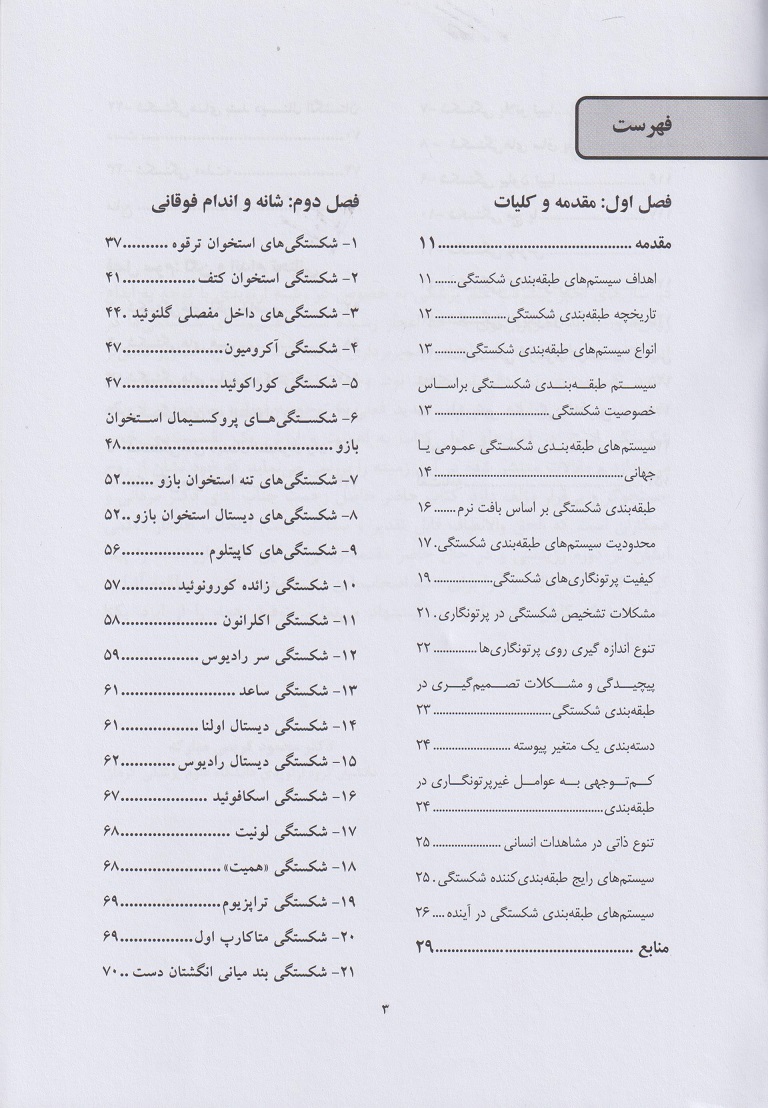 فهرست
فصل اول: مقدمه و کلیات
مقدمه ......................................... ۱۱
اهداف سیستم‌های طبقه‌بندی شکستگی....... ۱۱
تاریخچه طبقه‌بندی شکستگی...................... ۱۲
انواع سیستم‌های طبقه‌بندی شکستگی.......... ۱۳
سیستم طبقه‌بندی شکستگی براساس
خصوصیت شکستگی ................................... ۱۳
سیستم‌های طبقه‌بندی شکستگی عمومی یا
جهانی......................................................... ۱۴
طبقه‌بندی شکستگی بر اساس بافت نرم....... ۱۶
محدودیت سیستم‌های طبقه‌بندی شکستگی. ۱۷
کیفیت پرتونگاری‌های شکستگی.................. ۱۹
مشکلات تشخیص شکستگی در پرتونگاری. ۲۱
تنوع اندازه گیری روی پرتونگاری‌ها.............. ۲۲
پیچیدگی و مشکلات تصمیم‌گیری در
طبقه‌بندی شکستگی.................................... ۲۳
دسته‌بندی یک متغیر پیوسته ........................ ۲۴
کم‌توجهی به عوامل غیرپرتونگاری در
طبقه‌بندی.................................................... ۲۴
تنوع ذاتی در مشاهدات انسانی ..................... ۲۵
سیستم‌های رایج طبقه‌بندی‌کننده شکستگی. ۲۵
سیستم‌های طبقه‌بندی شکستگی در آینده .... ۲۶
منابع .......................................... ۲۹
فصل دوم: شانه و اندام فوقانی
۱- شکستگی‌های استخوان ترقوه ..........۳۷
۲- شکستگی استخوان کتف ................۴۱
۳- شکستگی‌های داخل مفصلی گلنوئید .۴۴
۴- شکستگی آکرومیون......................۴۷
۵- شکستگی کوراکوئید.....................۴۷
۶- شکستگی‌های پروکسیمال استخوان
بازو .............................................۴۸
۷- شکستگی‌های تنه استخوان بازو .......۵۲
۸- شکستگی‌های دیستال استخوان بازو ..۵۲
۹- شکستگی‌های کاپیتلوم ..................۵۶
۱۰- شکستگی زائده کورونوئید............۵۷
۱۱- شکستگی اکلرانون .....................۵۸
۱۲- شکستگی سر رادیوس .................۵۹
۱۳- شکستگی ساعد .........................۶۱
۱۴- شکستگی دیستال اولنا .................۶۱
۱۵- شکستگی دیستال رادیوس ............۶۲
۱۶- شکستگی اسکافوئید ...................۶۷
۱۷- شکستگی لونیت ........................۶۸
۱۸- شکستگی «همیت»......................۶۸
۱۹- شکستگی تراپزیوم........................۶۹
۲۰- شکستگی متاکارپ اول................۶۹
۲۱- شکستگی بند میانی انگشتان دست ..۷۰
۳